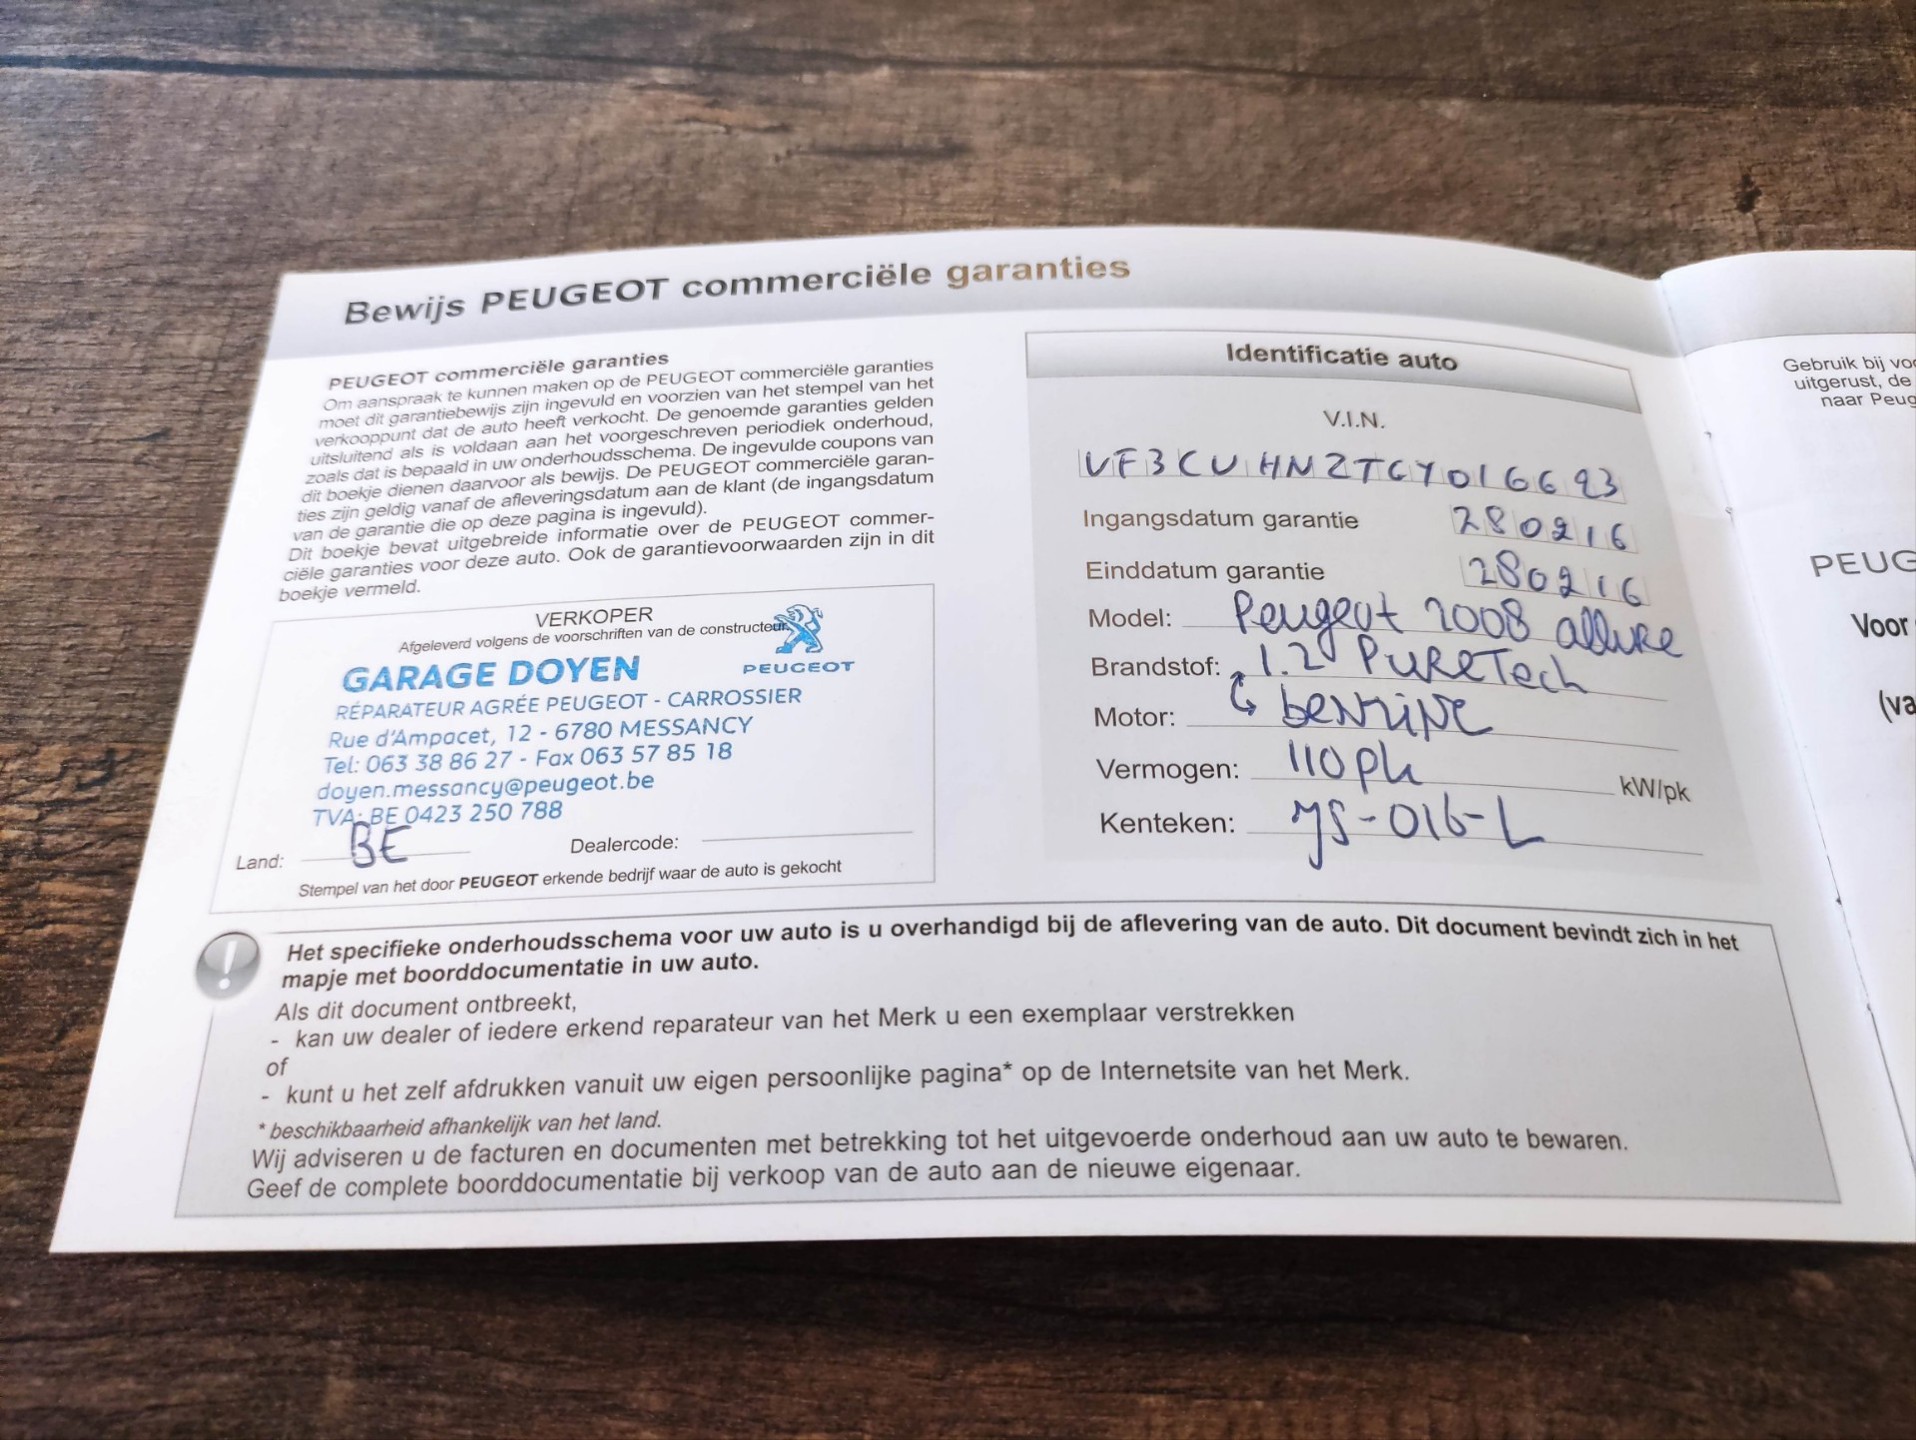 Bewijs PEUGEOT commerciële garanties
PEUGEOT commerciële garanties
Om aanspraak te kunnen maken op de PEUGEOT commerciële garanties
moet dit garantiebewijs zijn ingevuld en voorzien van het stempel van het
verkooppunt dat de auto heeft verkocht. De genoemde garanties gelden
uitsluitend als is voldaan aan het voorgeschreven periodiek onderhoud,
zoals dat is bepaald in uw onderhoudsschema. De ingevulde coupons van
dit boekje dienen daarvoor als bewijs. De PEUGEOT commerciële garan-
ties zijn geldig vanaf de afleveringsdatum aan de klant (de ingangsdatum
van de garantie die op deze pagina is ingevuld).
Dit boekje bevat uitgebreide informatie over de PEUGEOT commer-
ciële garanties voor deze auto. Ook de garantievoorwaarden zijn in dit
boekje vermeld.
VERKOPER
Afgeleverd volgens de voorschriften van de constructeur
PEUGEOT
GARAGE DOYEN
RÉPARATEUR AGRÉE PEUGEOT - CARROSSIER
Rue d'Ampacet, 12 - 6780 MESSANCY
Tel: 063 38 86 27 - Fax 063 57 85 18
doyen.messancy@peugeot.be
TVA: BE 0423 250 788
Land: BE Dealercode:
Stempel van het door PEUGEOT erkende bedrijf waar de auto is gekocht
Identificatie auto
V.I.N.
VF3CUHNZTGY016693
Ingangsdatum garantie 280216
Einddatum garantie 280216
Model: Peugeot 2008 allure
Brandstof: 1.2 PureTech
Motor: benzine
Vermogen: 110 pk kW/pk
Kenteken: JS-016-L
Het specifieke onderhoudsschema voor uw auto is u overhandigd bij de aflevering van de auto. Dit document bevindt zich in het
mapje met boorddocumentatie in uw auto.
Als dit document ontbreekt,
- kan uw dealer of iedere erkend reparateur van het Merk u een exemplaar verstrekken
of
- kunt u het zelf afdrukken vanuit uw eigen persoonlijke pagina* op de Internetsite van het Merk.
* beschikbaarheid afhankelijk van het land.
Wij adviseren u de facturen en documenten met betrekking tot het uitgevoerde onderhoud aan uw auto te bewaren.
Geef de complete boorddocumentatie bij verkoop van de auto aan de nieuwe eigenaar.
Gebruik bij vo
uitgerust, de
naar Peug
PEUG
Voor
(va